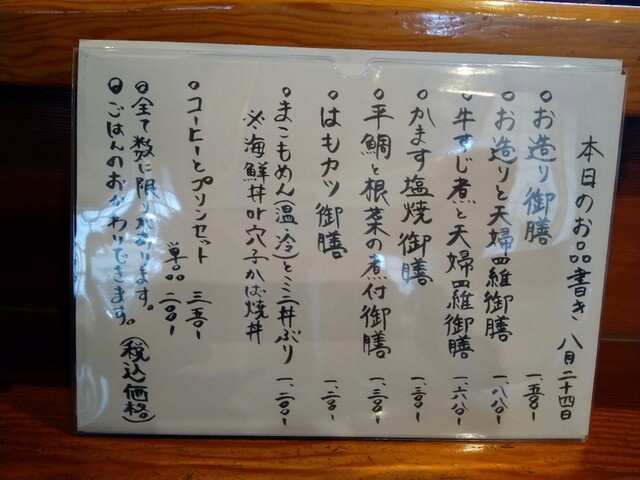 本日のお品書き 八月二十四日
お造り御膳 一、五〇〇-
お造りと天婦羅御膳 一、八〇〇-
牛すじ煮と天婦羅御膳 一、六八〇-
かます塩焼御膳 一、三〇〇-
平鯛と根菜の煮付御膳 一、三〇〇-
はもカツ御膳 一、二〇〇-
まこもめん(温・冷)とミニ丼ぶり 一、二〇〇-
※海鮮丼or穴子かば焼丼
コーヒーとプリンセット 三五〇-
単品 二〇〇-
全て数に限りがあります。
ごはんのおかわりできます。(税込価格)